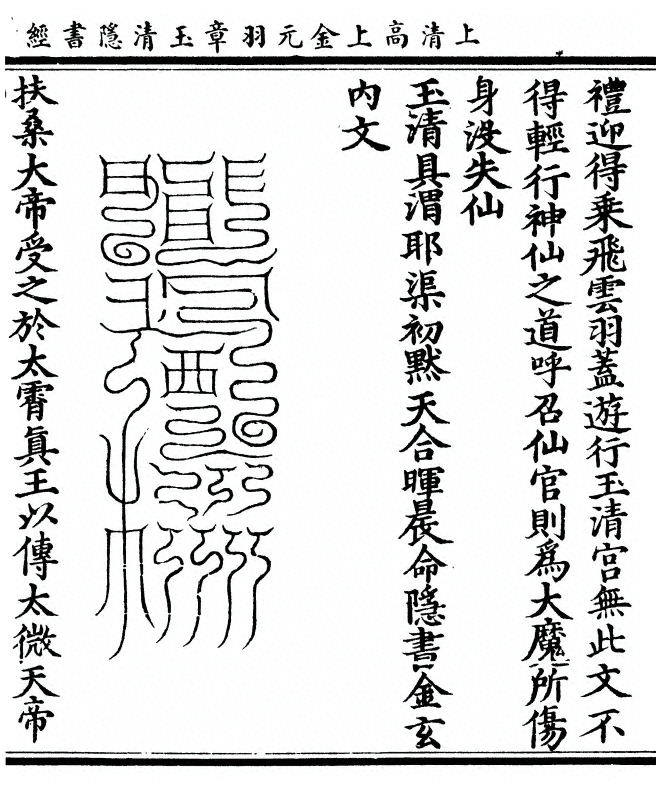 上清高上金元羽章玉清隱書經
禮迎得乘飛雲羽蓋遊行玉清宮無此文不
得輕行神仙之道呼召仙官則爲大魔所傷
身没失仙
玉清具渭耶渠初默天合暉晨命隱書金玄
内文
扶桑大帝受之於太霄眞王以傳太微天帝